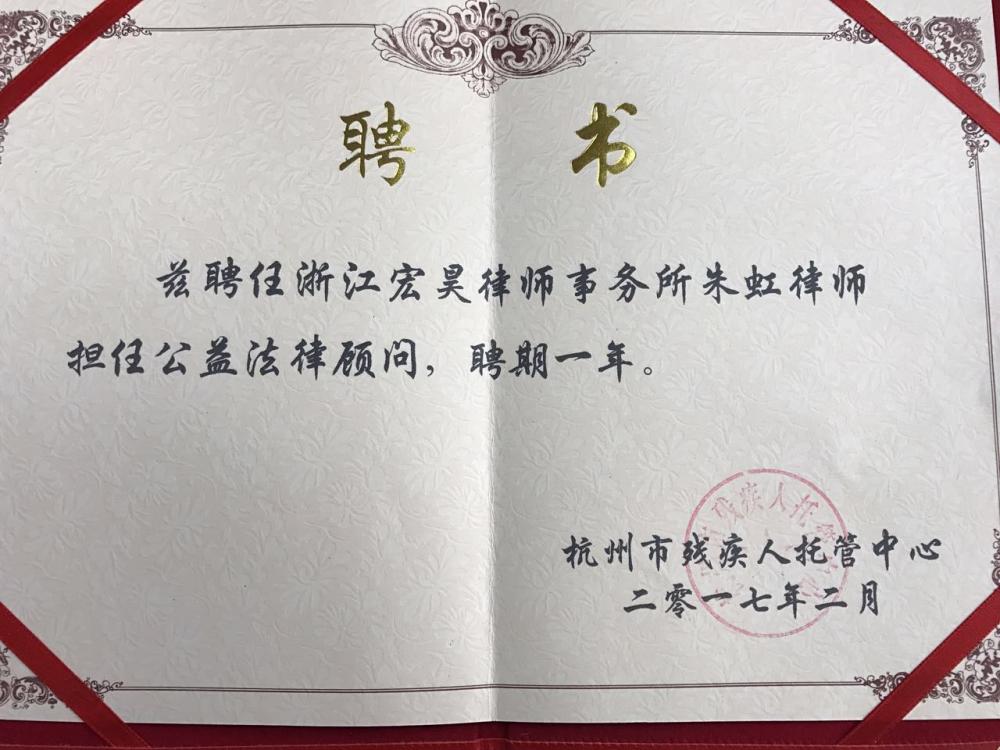 聘 书
兹聘任浙江宏昊律师事务所朱虹律师
担任公益法律顾问，聘期一年。
杭州市残疾人托管中心
二零一七年二月
残疾人托